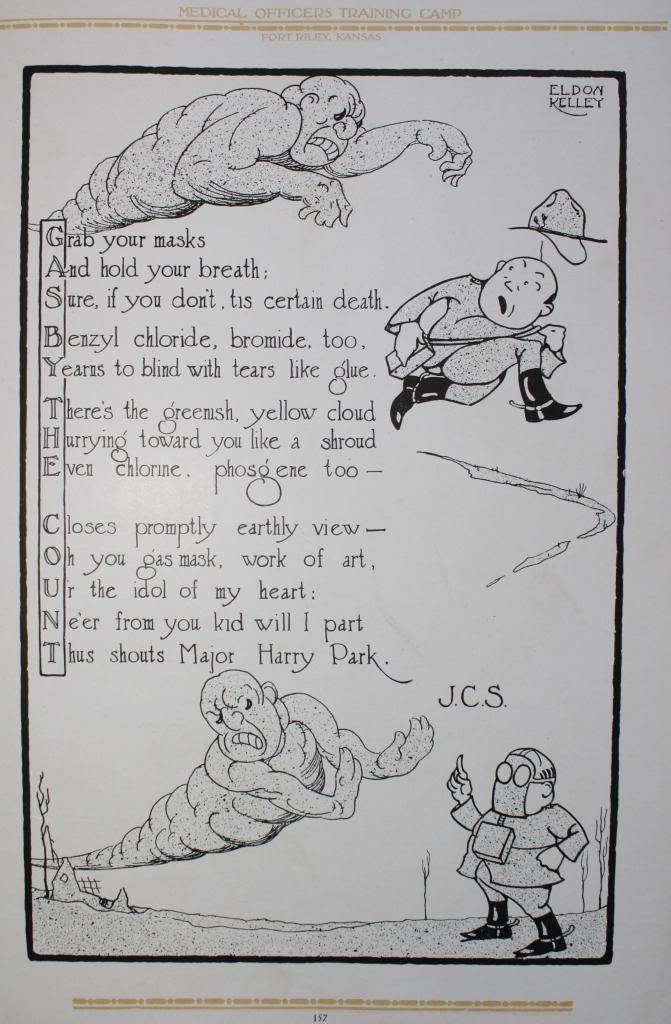 MEDICAL OFFICERS TRAINING CAMP
FORT RILEY, KANSAS
ELDON
KELLEY
Grab your masks
And hold your breath;
Sure, if you don't, tis certain death.
Benzyl chloride, bromide, too,
Yearns to blind with tears like glue.
There's the greenish, yellow cloud
Hurrying toward you like a shroud
Even chlorine, phosgene too —
Closes promptly earthly view —
Oh you gas mask, work of art,
U'r the idol of my heart:
Ne'er from you kid will I part
Thus shouts Major Harry Park.
J.C.S.
157